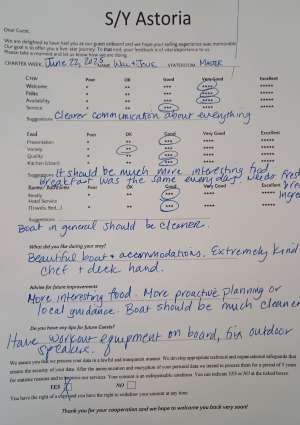 S/Y Astoria
Dear Guest,
We are delighted to have had you as our guest onboard and we hope your sailing experience was memorable.
Our goal is to offer you a five-star journey. To that end, your feedback is of vital importance to us.
Please take a moment and let us know how we are doing.
CHARTER WEEK: June 22, 2023 NAME Will + Jove STATEROOM Master
Crew Poor OK Good Very Good Excellent
Welcome * ** *** **** *****
Polite * ** *** **** *****
Availability * ** *** **** *****
Service * ** *** **** *****
Suggestions Clearer communication about everything
Food Poor OK Good Very Good Excellent
Presentation * ** *** **** *****
Variety * ** *** **** *****
Quality * ** *** **** *****
Kitchen * ** *** **** *****
Suggestions It should be much more interesting food
breakfast was the same every day. Needs fresh
Good Very Good Excellent
Beauty * ** *** **** *****
Hotel Service * ** *** **** *****
(Towels, Bed...)
Suggestions
Boat in general should be cleaner.
What did you like during your stay?
Beautiful boat + accommodations. Extremely kind
chef + deck hand.
Advice for future improvements
More interesting food. More proactive planning or
local guidance. Boat should be much cleaner
Do you have any tips for future Guests?
Have workout equipment on board, fix outdoor
speaker.
We assure you that we process your data in a lawful and transparent manner. We develop appropriate technical and organisational safeguards that
ensure the security of your data. After the anonymisation and encryption of your personal data we intend to process them for a period of 5 years
for statistic reasons and to improve our services. Your consent is an indispensable condition. You can indicate YES or NO at the linked boxes.
YES NO
You have the right of a erasure you have the right to withdraw your consent at any time.
Thank you for your cooperation and we hope to welcome you back very soon!